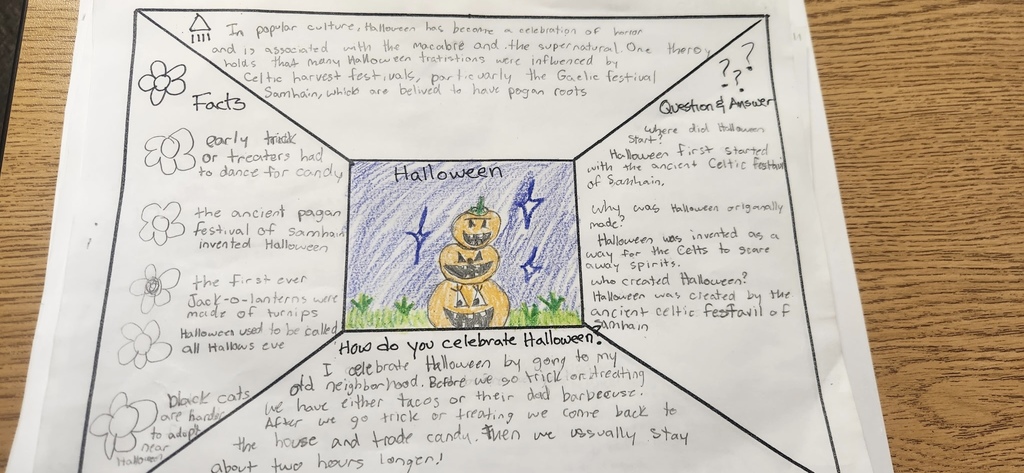 In popular culture, Halloween has become a celebration of horror
and is associated with the macabre and the supernatural. One theroy
holds that many Halloween tratistions were influenced by
Celtic harvest festivals, particuarly the Gaelic festival
Samhain, which are belived to have pagan roots
Facts
early trick
or treaters had
to dance for candy
the ancient pagan
festival of samhain
invented Halloween
the first ever
Jack-o-lanterns were
made of turnips
Halloween used to be called
all Hallows eve
black cats
are harder
to adopt
near
Halloween
Halloween
? ? ?
Question & Answer
where did Halloween
start?
Halloween first started
with the ancient Celtic festival
of Samhain.
why was Halloween origonally
made?
Halloween was invented as a
way for the Celts to scare
away spirits.
who created Halloween?
Halloween was created by the
ancient celtic festavil of
Samhain
How do you celebrate Halloween?
I celebrate Halloween by going to my
old neighborhood. Before we go trick or treating
we have either tacos or their dad barbecuse.
After we go trick or treating we come back to
the house and trade candy. Then we ussually stay
about two hours longer!